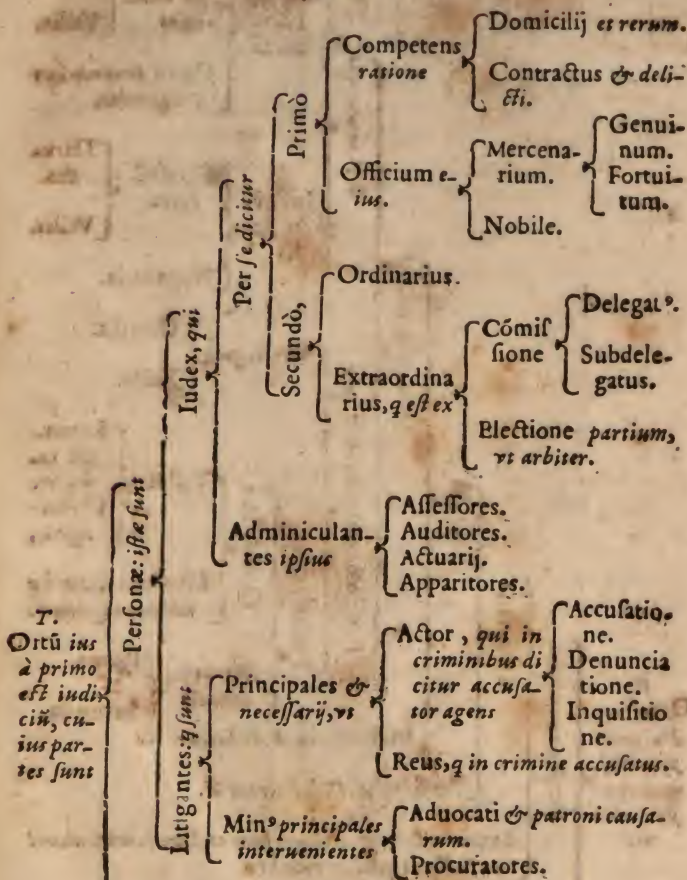 T.
Ortũ ius
à primo
est iudi
ciũ, cu-
ius par-
tes sunt
Personæ: istæ sunt
Iudex, qui
Per se dicitur
Primò
Competens
ratione
Domicilij et rerum.
Contractus & deli-
cti.
Officium e-
ius.
Mercena-
rium.
Genui-
num.
Fortui-
tum.
Nobile.
Secundò,
Ordinarius.
Extraordina
rius, q est ex
Cómis
sione
Delegatꝰ.
Subdele-
gatus.
Electione partium,
vt arbiter.
Adminiculan-
tes ipsius
Assessores.
Auditores.
Actuarij.
Apparitores.
Litigantes: q sunt
Principales &
necessarij, vt
Actor, qui in
criminibus di
citur accusa-
tor agens
Accusatio-
ne.
Denuncia
tione.
Inquisitio
ne.
Reus, q in crimine accusatus.
Minꝰ principales
interuenientes
Aduocati & patroni causa-
rum.
Procuratores.